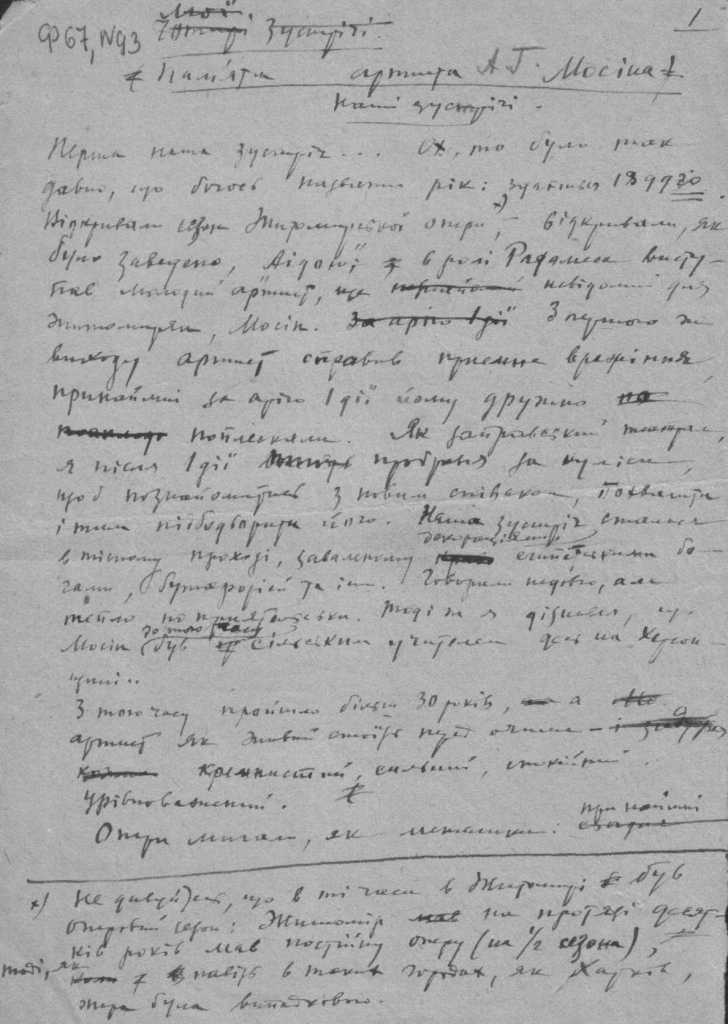 Ф 67, N93 Мої
Чотирі Зустрічі.
1
Пам'яти артиста А Г. Мосіна
Наші зустрічі.
Перша наша зустріч... Ох, то було так
давно, що боюсь назвати рік: здається 1899го
Відкривали сезон Житомирської опери,х) відкривали, як
було заведено, Аїдою й в ролі Радамеса висту-
пав молодий артист, ще невідомий для
житомирян, Мосін. За арію Ідії З першого ж
виходу артист справив приємне вражіння,
принаймні за арію Ідії йому дружно на
поплескали. Як заправський театрал,
я після Ідії пробрався за куліси,
щоб познайомитись з новим співаком, похвалити
і тим підбадьорити його. Наша зустріч сталася
в тісному проході, заваленому декораціями єгипетськими бо-
гами, бутафорією та ін. Говорили недовго, але
тепло по приятельськи. Тоді ж я дізнався, що
Мосін до того часу був сільським учителем десь на Херсон-
щині.
З того часу пройшло більш 30 років, а
артист як живий стоїть перед очима –
кремнистий, сильний, спокійний.
урівноважений.
Опери мигали, як метелики: принаймні
х) Не дивуйтесь, що в ті часи в Житомирі був
оперовий сезон: Житомир мав на протязі десят-
ків років мав постійну оперу (на 1/2 сезона),
тоді, як навіть в таких городах, як Харків,
опера була випадковою.